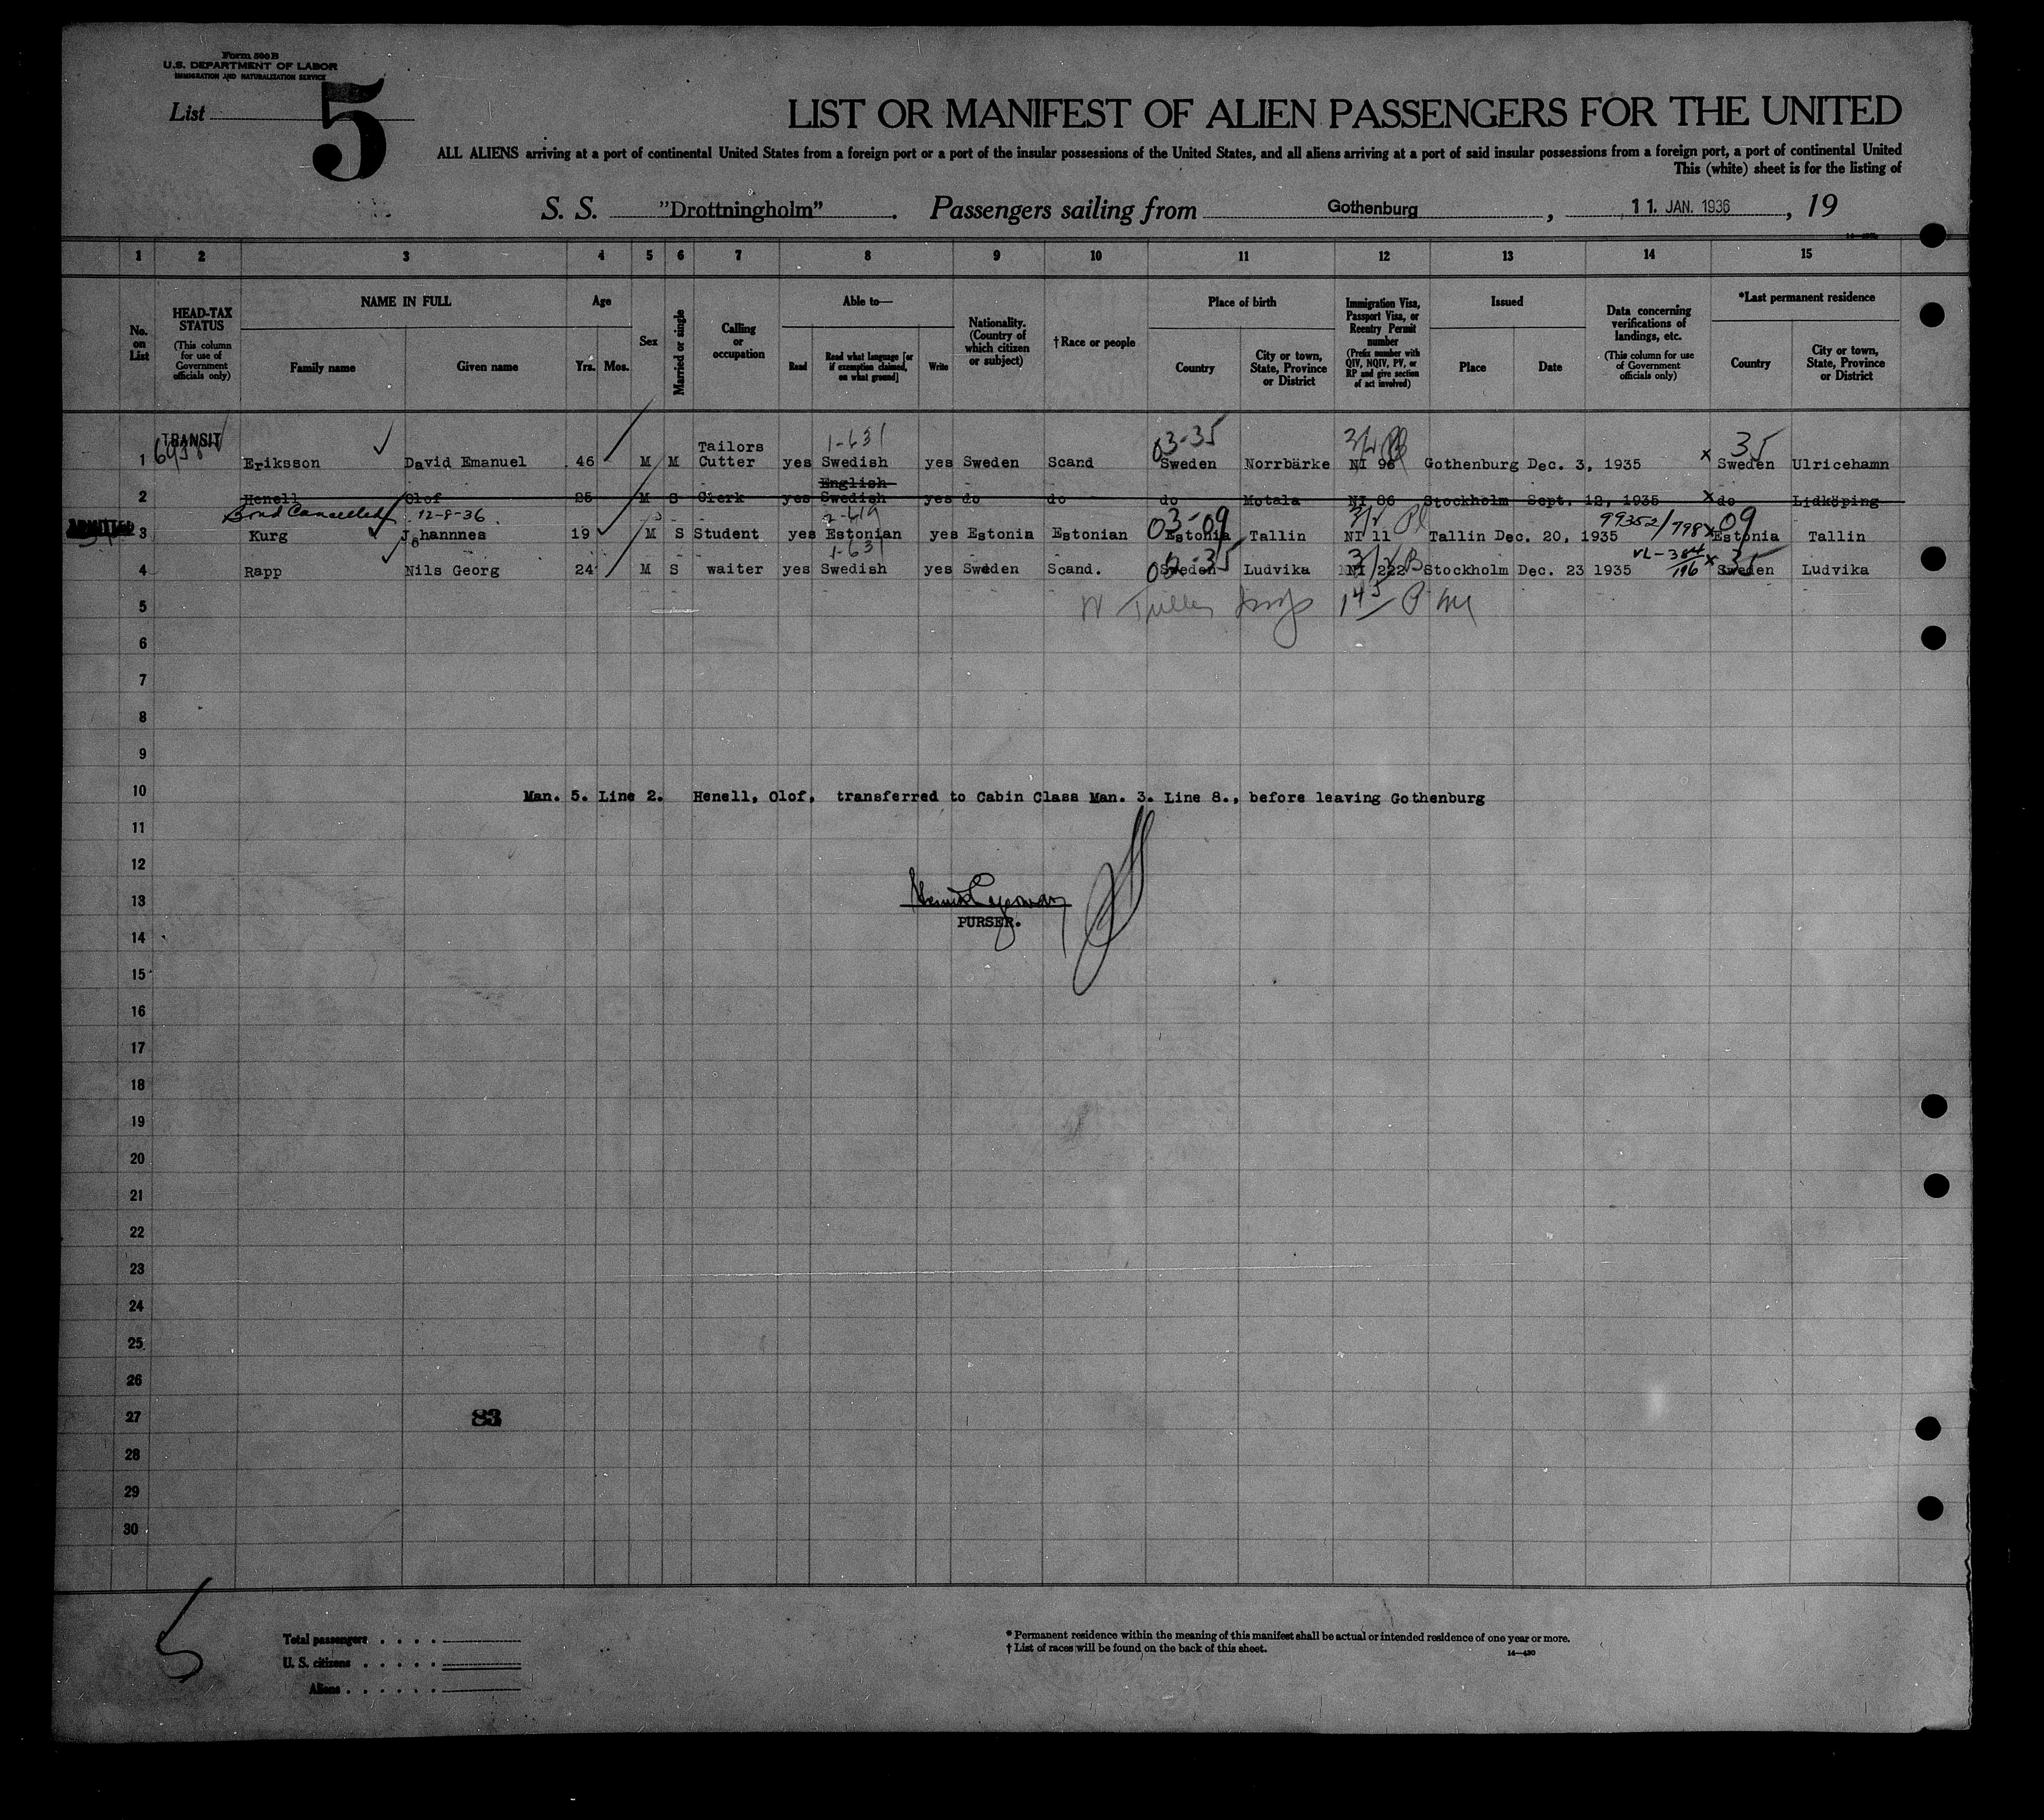 Form 500 B
U.S. DEPARTMENT OF LABOR
IMMIGRATION AND NATURALIZATION SERVICE
List 5
LIST OR MANIFEST OF ALIEN PASSENGERS FOR THE UNITED
ALL ALIENS arriving at a port of continental United States from a foreign port or a port of the insular possessions of the United States, and all aliens arriving at a port of said insular possessions from a foreign port, a port of continental United
This (white) sheet is for the listing of
S. S. "Drottningholm". Passengers sailing from Gothenburg, 11. JAN. 1936, 19
1 2 3 4 5 6 7 8 9 10 11 12 13 14 15
No. on List
HEAD-TAX STATUS
(This column for use of Government officials only)
NAME IN FULL
Family name Given name
Age
Yrs. Mos.
Sex
Married or single
Calling or occupation
Able to—
Read
Read what language [or if exemption claimed, on what ground]
Write
Nationality. (Country of which citizen or subject)
†Race or people
Place of birth
Country
City or town, State, Province or District
Immigration Visa, Passport Visa, or Reentry Permit number
(Prefix number with QIV, NQIV, PV, or RP and give section of act involved)
Issued
Place Date
Data concerning verifications of landings, etc.
(This column for use of Government officials only)
*Last permanent residence
Country
City or town, State, Province or District
TRANSIT
1-631 03-35 35
1 Eriksson David Emanuel 46 M M Tailors Cutter yes Swedish yes Sweden Scand Sweden Norrbärke NI 96 Gothenburg Dec. 3, 1935 x Sweden Ulricehamn
English
2 Henell Olof 25 M S Clerk yes Swedish yes do do do Motala NI 86 Stockholm Sept. 12, 1935 x do Lidköping
Bond Cancelled 12-8-36
2-619 03-09 99352/798 09
ADMITTED
3 Kurg Johannnes 19 M S Student yes Estonian yes Estonia Estonian Estonia Tallin NI 11 Tallin Dec. 20, 1935 x Estonia Tallin
1-631 03-35 VL-304/196 35
4 Rapp Nils Georg 24 M S waiter yes Swedish yes Sweden Scand. Sweden Ludvika NI 222 Stockholm Dec. 23 1935 x Sweden Ludvika
5
6
7
8
9
10
Man. 5. Line 2. Henell, Olof, transferred to Cabin Class Man. 3. Line 8., before leaving Gothenburg
11
12
13
PURSER.
14
15
16
17
18
19
20
21
22
23
24
25
26
27
83
28
29
30
5
Total passengers
U. S. citizens
Aliens
* Permanent residence within the meaning of this manifest shall be actual or intended residence of one year or more.
† List of races will be found on the back of this sheet.
14—430